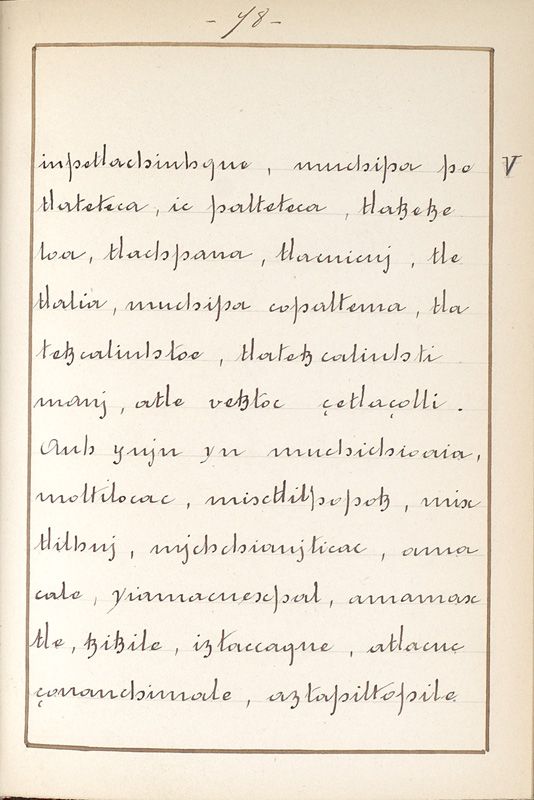 - 48 -
inpetlachiuhque, muchipa po V
tlateteca, ic palteteca, tlatzetze
loa, tlachpana, tlacuicuj, tle
tlalia, muchipa copaltema, tla
tetzcaliuhtoe, tlatetzcaliuhti
manj, atle vetztoc çetlaçolli.
Auh yuju yn muchichioaia,
moltilocac, mixtlilpopotz, mix
tlilhuj, mjchchianjticac, ama
cale, yiamacuexpal, amamax
tle, tzitzile, iztaccaque, atlacue
çonanchimale, aztapiltopile